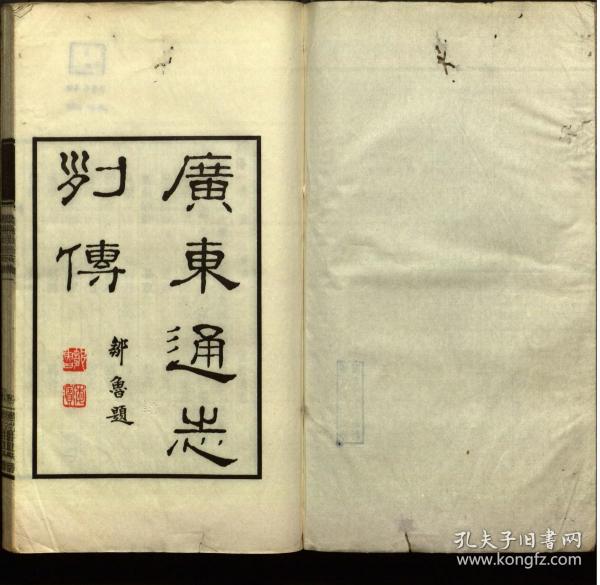 廣東通志
列傳
鄒魯題
孔夫子旧书网
www.kongfz.com